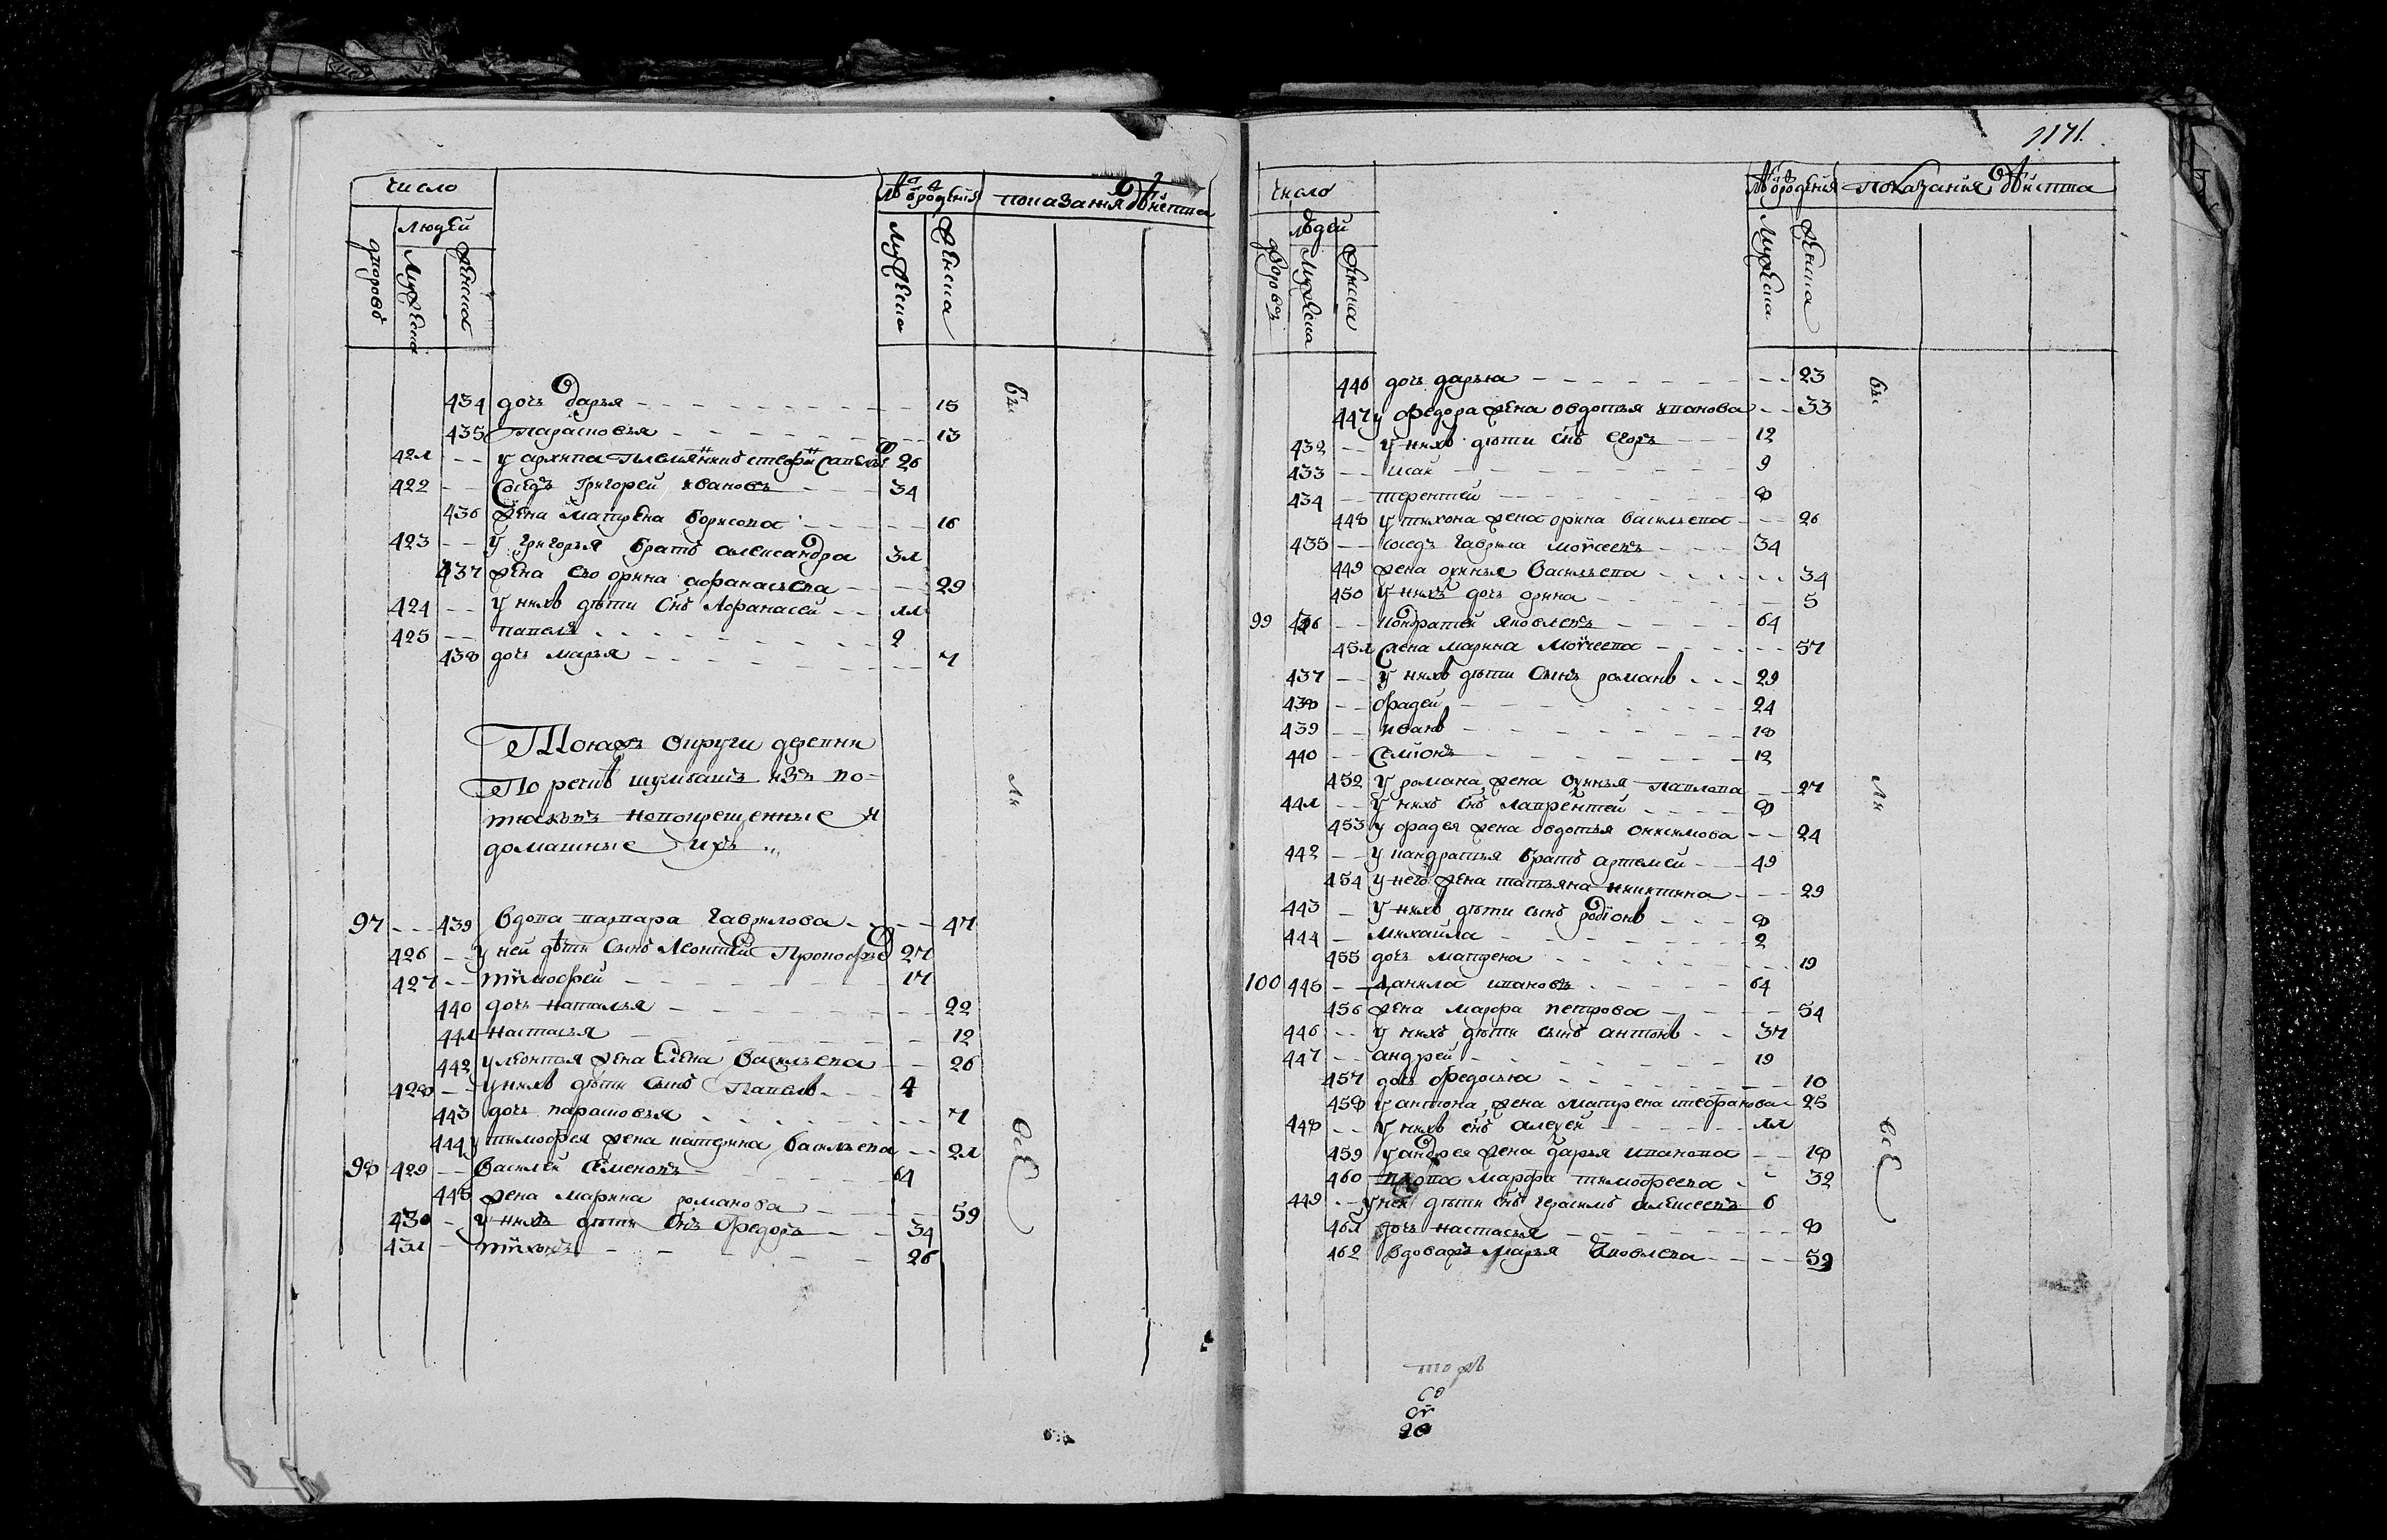 число
людей
дворовъ
мужеска
женска
лѣта от рождения
мужеска
женска
показания действа
434 дочь дарья 15
435 Парасковья 13
421 у архипа племянникъ 26
422 Соседъ Григорей Ивановъ 34
436 жена матрена борисова 16
423 у григорья братъ александра 31
437 жена ево орина афанасьева 29
424 у нихъ дѣти снъ Афанасей 11
425 павелъ 2
438 дочь марья 7
Тоюжъ округи деревни
По речкѣ шумбашъ изъ во-
тяковъ новокрещенные и
домашные ихъ
97 439 вдова варвара Гаврилова 47
426 у ней дѣти сынъ Леонтей Прокофьев 27
427 тимофей 17
440 дочь наталья 22
441 настасья 12
442 у леонтья жена елена васильева 26
428 у нихъ дѣти сынъ Павелъ 4
443 дочь парасковья 7
444 у тимофея жена катерина васильева 21
98 429 василей семеновъ 64
445 жена марина романова 59
430 у нихъ дѣти снъ Федоръ 34
431 тихонъ 26
бы
ли
всѣ
1171.
число
людей
дворовъ
мужеска
женска
лѣта от рождения
мужеска
женска
показания действа
446 дочь дарья 23
447 у федора жена овдотья иванова 33
432 у нихъ дѣти снъ егоръ 12
433 исак 9
434 терентей 8
448 у тихона жена орина васильева 26
435 соседъ гаврила моисеевъ 34
449 жена оринья васильева 34
450 у нихъ дочь орина 5
99 436 Кондратей яковлевъ 64
451 жена марина моисеева 57
437 у нихъ дѣти сынъ романъ 29
438 фадей 24
439 иванъ 18
440 Семионъ 12
452 у романа жена оринья павлова 27
441 у нихъ снъ лаврентей 8
453 у фадея жена овдотья онисимова 24
442 у кандратья братъ артемей 49
454 у него жена татьяна никитина 29
443 у нихъ дѣти сынъ родионъ 8
444 михайла 2
455 дочь матрена 19
100 445 данила ивановъ 64
456 жена марфа петрова 54
446 у нихъ дѣти сынъ антонъ 37
447 андрей 19
457 дочь федосья 10
458 у антона жена матрена 25
448 у нихъ снъ алексей 11
459 у андрея жена дарья иванова 18
460 вдова марфа тимофеева 32
449 у нея дѣти снъ герасимъ алексеевъ 6
461 дочь настасья 8
462 вдова жъ марья яковлева 59
бы
ли
всѣ
тожъ